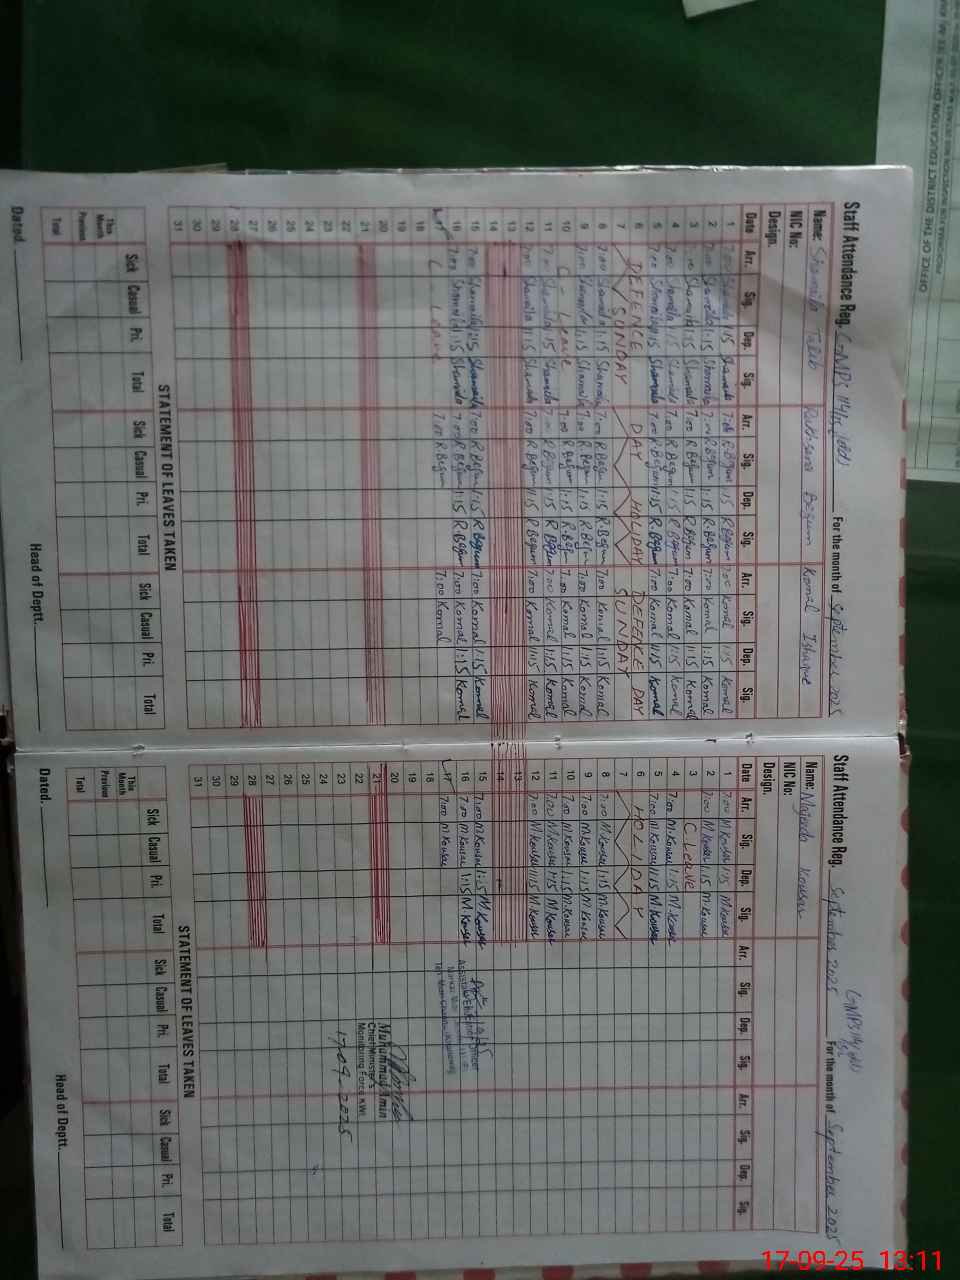 Staff Attendance Reg. For the month of September 2025
Name: Shamaila Talib Rukhsana Begum Komal Ishaque
NIC No:
Design.
Date Arr. Sig. Dep. Sig. Arr. Sig. Dep. Sig. Arr. Sig. Dep. Sig.
1 7:00 Shamaila 1:15 Shamaila 7:00 R.Begum 1:15 R.Begum 7:00 Komal 1:15 Komal
2 7:00 Shamaila 1:15 Shamaila 7:00 R.Begum 1:15 R.Begum 7:00 Komal 1:15 Komal
3 7:00 Shamaila 1:15 Shamaila 7:00 R.Begum 1:15 R.Begum 7:00 Komal 1:15 Komal
4 7:00 Shamaila 1:15 Shamaila 7:00 R.Begum 1:15 R.Begum 7:00 Komal 1:15 Komal
5 7:00 Shamaila 1:15 Shamaila 7:00 R.Begum 1:15 R.Begum 7:00 Komal 1:15 Komal
6 DEFENCE DAY HOLIDAY DEFENCE DAY
7 SUNDAY SUNDAY
8 7:00 Shamaila 1:15 Shamaila 7:00 R.Begum 1:15 R.Begum 7:00 Komal 1:15 Komal
9 7:00 Shamaila 1:15 Shamaila 7:00 R.Begum 1:15 R.Begum 7:00 Komal 1:15 Komal
10 C - Leave 7:00 R.Begum 1:15 R.Begum 7:00 Komal 1:15 Komal
11 7:00 Shamaila 1:15 Shamaila 7:00 R.Begum 1:15 R.Begum 7:00 Komal 1:15 Komal
12 7:00 Shamaila 1:15 Shamaila 7:00 R.Begum 1:15 R.Begum 7:00 Komal 1:15 Komal
13
14
15 7:00 Shamaila 1:15 Shamaila 7:00 R.Begum 1:15 R.Begum 7:00 Komal 1:15 Komal
16 7:00 Shamaila 1:15 Shamaila 7:00 R.Begum 1:15 R.Begum 7:00 Komal 1:15 Komal
17 C - Leave 7:00 R.Begum 7:00 Komal
18
19
20
21
22
23
24
25
26
27
28
29
30
31
STATEMENT OF LEAVES TAKEN
Sick Casual Pri. Total Sick Casual Pri. Total Sick Casual Pri. Total
This Month
Previous
Total
Dated. Head of Deptt.
GMPS 114/15L (old)
Staff Attendance Reg. September 2025 For the month of September 2025
Name: Majeeda Kousar
NIC No:
Design.
Date Arr. Sig. Dep. Sig. Arr. Sig. Dep. Sig. Arr. Sig. Dep. Sig.
1 7:00 M.Kousar 1:15 M.Kousar
2 7:00 M.Kousar 1:15 M.Kousar
3 C Leave
4 7:00 M.Kousar 1:15 M.Kousar
5 7:00 M.Kousar 1:15 M.Kousar
6 HOLIDAY
7
8 7:00 M.Kousar 1:15 M.Kousar
9 7:00 M.Kousar 1:15 M.Kousar
10 7:00 M.Kousar 1:15 M.Kousar
11 7:00 M.Kousar 1:15 M.Kousar
12 7:00 M.Kousar 1:15 M.Kousar
13
14
15 7:00 M.Kousar 1:15 M.Kousar
16 7:00 M.Kousar 1:15 M.Kousar
17 7:00 M.Kousar
18
19
20
21
22
23
24
25
26
27
28
29
30
31
Muhammad Amin
Chief Minister's
Monitoring Force KWl
17-09-2025
STATEMENT OF LEAVES TAKEN
Sick Casual Pri. Total Sick Casual Pri. Total Sick Casual Pri. Total
This Month
Previous
Total
Dated. Head of Deptt.
OFFICE OF THE DISTRICT EDUCATION OFFICER
17-09-25 13:11